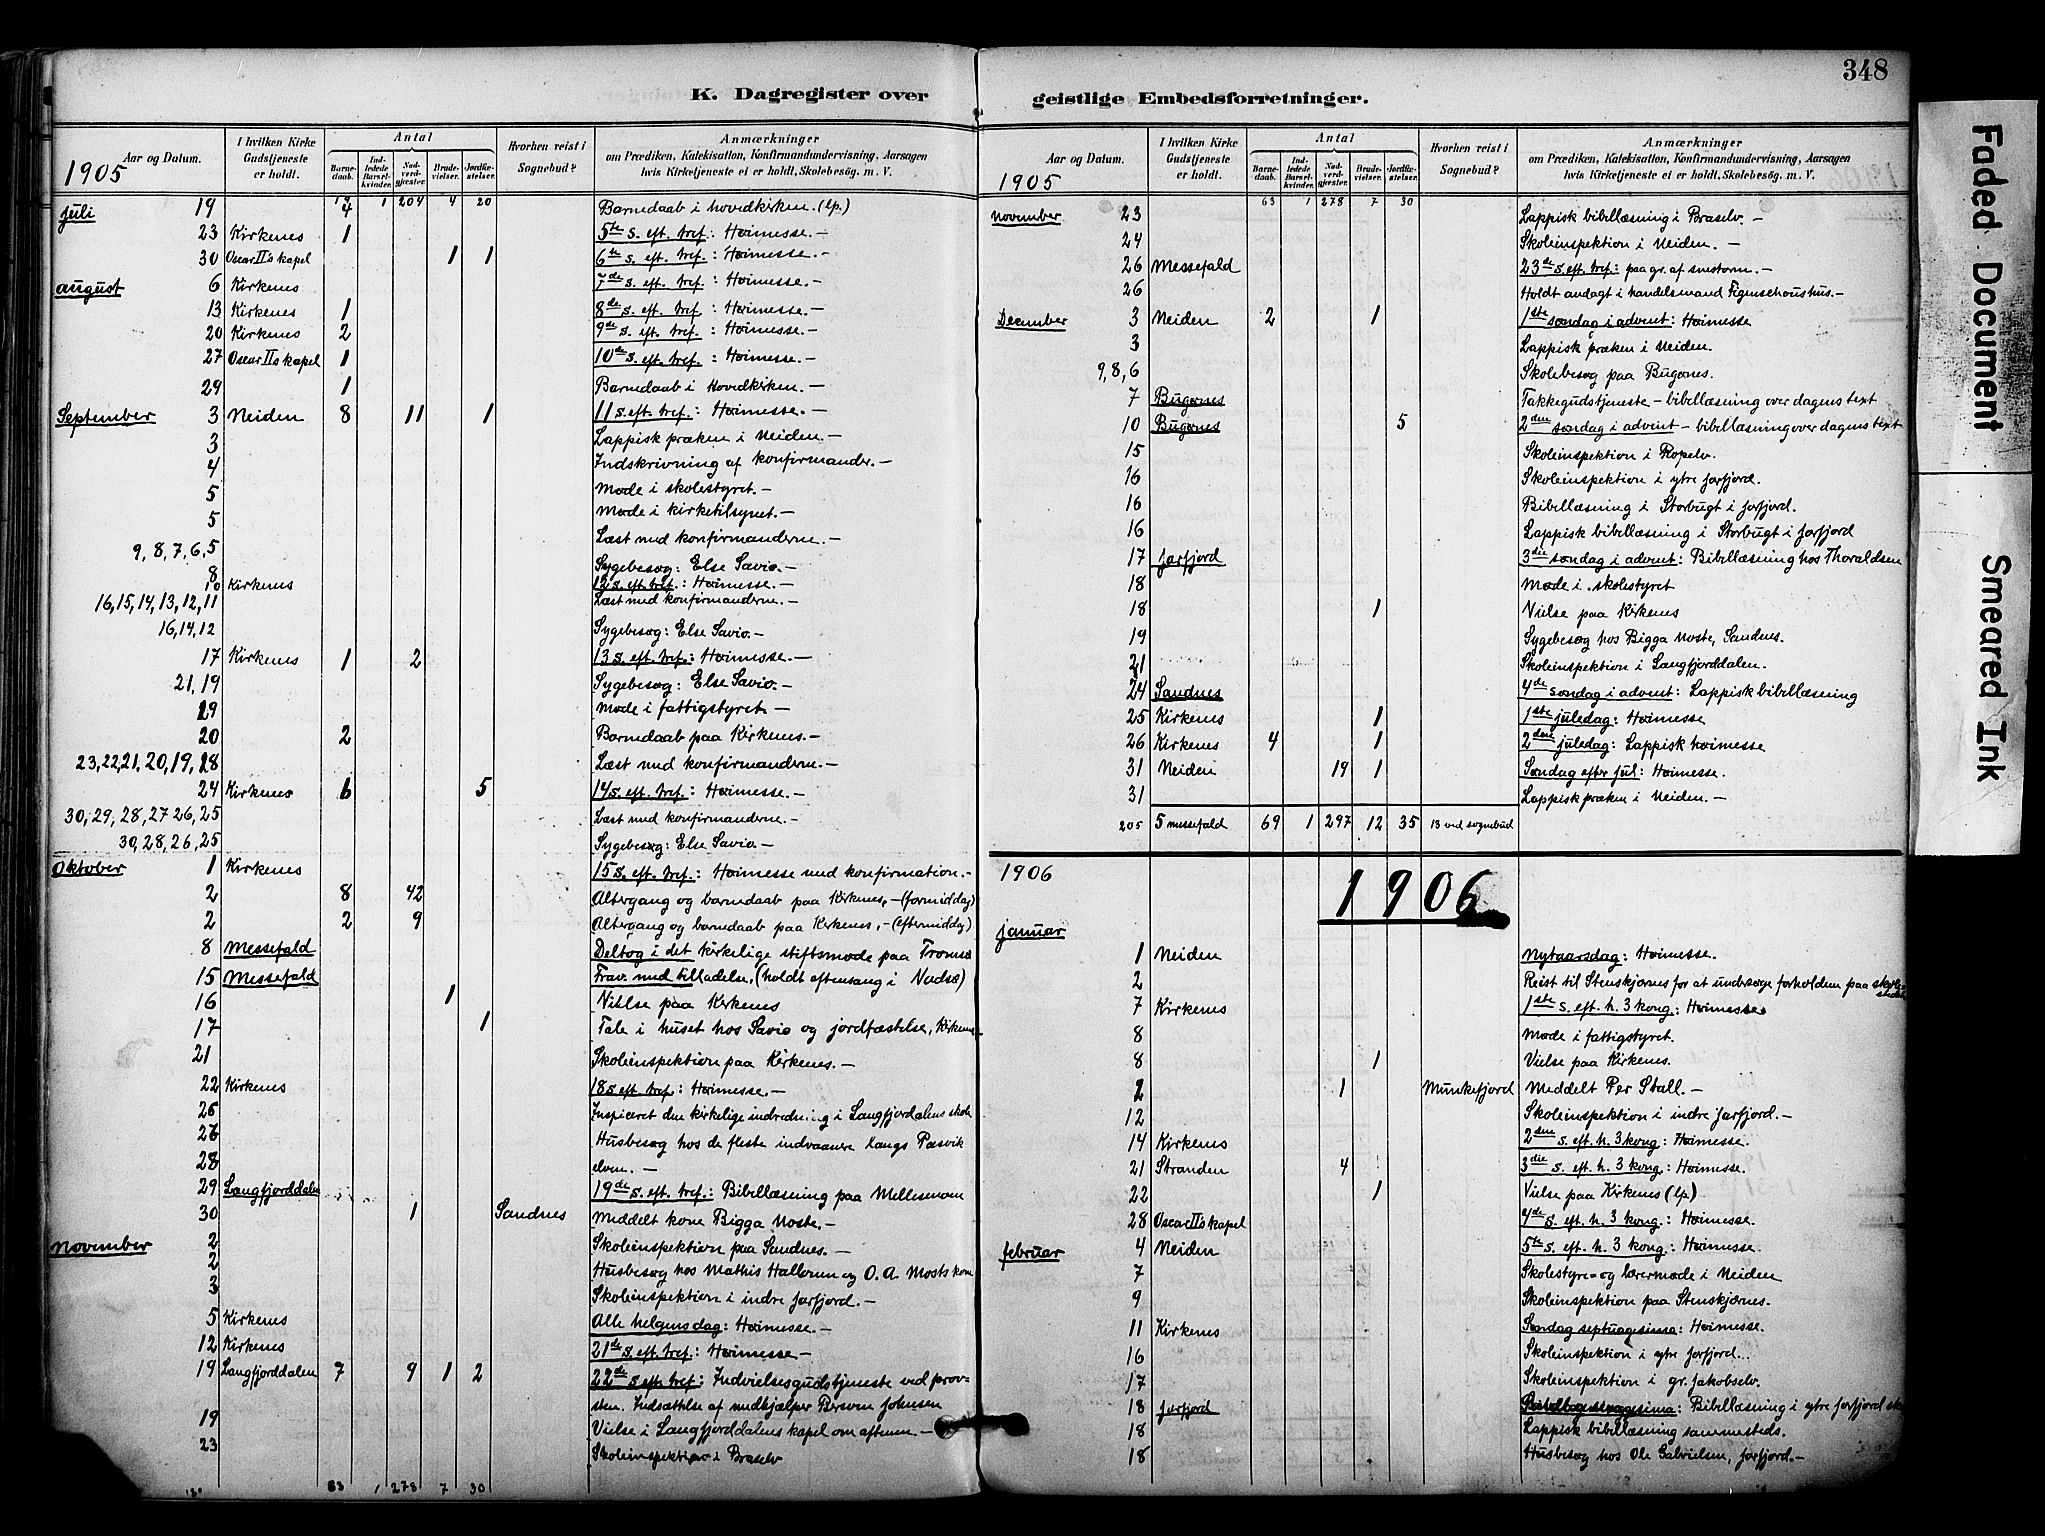 348
K. Dagregister over geistlige Embedsforretninger.
Aar og Datum. I hvilken Kirke Gudstjeneste er holdt. Antal Barnedaab. Indledede Barselkvinder. Nadverdgjester. Brudevielser. Jordfæstelser. Hvorhen reist i Sognebud? Anmærkninger om Prædiken, Katekisation, Konfirmandundervisning, Aarsagen hvis Kirketjeneste ei er holdt, Skolebesøg. m. V.
1905
1 204 4 20
Juli 19 4 Barnedaab i hovedkirken. (lp.)
23 Kirkenes 1 5te s. eft. tref.: Høimesse. -
30 Oscar II's kapel 1 1 6te s. eft. tref.: Høimesse. -
august 6 Kirkenes 7de s. eft. tref.: Høimesse. -
13 Kirkenes 1 8de s. eft. tref.: Høimesse. -
20 Kirkenes 2 9de s. eft. tref.: Høimesse. -
27 Oscar II's kapel 1 10de s. eft. tref.: Høimesse. -
29 1 Barnedaab i Hovedkirken. -
September 3 Neiden 8 11 1 11 s. eft. tref.: Høimesse. -
3 Lappisk præken i Neiden. -
4 Indskrivning af konfirmander. -
5 Møde i skolestyret. -
5 Møde i kirketilsynet. -
9, 8, 7, 6, 5 Læst med konfirmanderne. -
8 Sygebesøg: Else Savio. -
10 Kirkenes 12 s. eft. tref.: Høimesse. -
16, 15, 14, 13, 12, 11 Læst med konfirmanderne. -
16, 14, 12 Sygebesøg: Else Savio. -
17 Kirkenes 1 2 13 s. eft. tref.: Høimesse. -
21, 19 Sygebesøg: Else Savio. -
19 Møde i fattigstyret -
20 2 Barnedaab paa Kirkenes. -
23, 22, 21, 20, 19, 18 Læst med konfirmanderne. -
24 Kirkenes 6 5 14 s. eft. tref.: Høimesse. -
30, 29, 28, 27 26, 25 Læst med konfirmanderne. -
30, 28, 26, 25 Sygebesøg: Else Savio -
Oktober 1 Kirkenes 15 s. eft. tref.: Høimesse med konfirmation. -
2 8 42 Altergang og barnedaab paa Kirkenes, - (formiddag)
2 2 9 Altergang og barnedaab paa Kirkenes, - (eftermiddag)
8 Messefald Deltog i det kirkelige stiftsmøde paa Tromsø
15 Messefald Frav. med tilladelse, (holdt aftensang i Vadsø)
16 1 Vielse paa Kirkenes
17 1 Tale i huset hos Savio og jordfæstelse, Kirkenes -
21 Skoleinspektion paa Kirkenes. -
22 Kirkenes 18 s. eft. tref.: Høimesse. -
26 Inspiceret den kirkelige indredning i Langfjordalens skole
27 Husbesøg hos de fleste indvaanere langs Pasvik
28 elven. -
29 Langfjorddalen 19de s. eft. tref.: Bibellæsning paa Mellesmoen
30 1 Sandnes Meddelt kone Bigga Noste. -
November 2 Skoleinspektion paa Sandnes. -
2 Husbesøg hos Mathis Hallonen og O. A. Mosts kone
3 Skoleinspektion i indre Jarfjord. -
5 Kirkenes Alle helgens dag: Høimesse. -
12 Kirkenes 21de s. eft. tref.: Høimesse -
19 Langfjorddalen 7 9 1 2 22de s. eft. tref.: Indvielsesgudstjeneste ved prov-
sten. Indsættelse af medhjælper Persom Johnsen
19 Vielse i Langfjorddalens kapel om aftenen. -
23 Skoleinspektion i Braselv
63 1 278 7 30
Aar og Datum. I hvilken Kirke Gudstjeneste er holdt. Antal Barnedaab. Indledede Barselkvinder. Nadverdgjester. Brudevielser. Jordfæstelser. Hvorhen reist i Sognebud? Anmærkninger om Prædiken, Katekisation, Konfirmandundervisning, Aarsagen hvis Kirketjeneste ei er holdt, Skolebesøg. m. V.
1905
63 1 278 7 30
November 23 Lappisk bibellæsning i Braselv. -
24 Skoleinspektion i Neiden. -
26 Messefald 23de s. eft. tref.: paa gr. af snestorm. -
26 Holdt andagt i handelsmand Figenschous hus. -
December 3 Neiden 2 1 1ste søndag i advent: Høimesse
3 Lappisk præken i Neiden.
9, 8, 6 Skolebesøg paa Bugønes.
7 Bugønes Takkegudstjeneste - bibellæsning over dagens text
10 Bugønes 5 2den søndag i advent - bibellæsning over dagens text
15 Skoleinspektion i Ropelv.
16 Skoleinspektion i ytre Jarfjord.
16 Bibellæsning i Storbugt i Jarfjord.
16 Lappisk bibellæsning i Storbugt i Jarfjord
17 Jarfjord 3die søndag i advent: Bibellæsning hos Thoraldsen
18 Møde i skolestyret
18 1 Vielse paa Kirkenes
19 Sygebesøg hos Bigga Noste, Sandnes.
21 Skoleinspektion i Langfjorddalen.
24 Sandnes 4de søndag i advent: Lappisk bibellæsning
25 Kirkenes 1 1ste juledag: Høimesse
26 Kirkenes 4 1 2den juledag: Lappisk høimesse
31 Neiden 19 1 Søndag efter jul: Høimesse.
31 Lappisk præken i Neiden. -
205 5 messefald 69 1 297 12 35 13 ved sognebud
1906 1906
Januar
1 Neiden Nytaarsdag: Høimesse.
2 Reist til Stenskjærnes for at undersøge forholdene paa skolestedet
7 Kirkenes 1ste s. eft. h. 3 kong.: Høimesse.
8 Møde i fattigstyret.
8 1 Vielse paa Kirkenes.
2 1 Munkefjord Meddelt Per Stall. -
12 Skoleinspektion i indre Jarfjord. -
14 Kirkenes 2den s. eft. h. 3 kong: Høimesse.
21 Stranden 4 3die s. eft. h. 3 kong.: Høimesse.
22 1 Vielse paa Kirkenes (lp.)
28 Oscar II's kapel 4de s. eft. h. 3 kong.: Høimesse.
februar 4 Neiden 5te s. eft. h. 3 kong.: Høimesse.
7 Skolestyre- og lærermøde i Neiden
9 Skoleinspektion paa Stenskjærnes.
11 Kirkenes Søndag septuagesima: Høimesse.
16 Skoleinspektion i ytre Jarfjord.
17 Skoleinspektion i gr. Jakobselv.
18 Jarfjord Bibellæsning i ytre Jarfjord
18 Lappisk bibellæsning sammesteds.
18 Husbesøg hos Ole Gabrielsen, Jarfjord. -
Faded Document
Smeared Ink